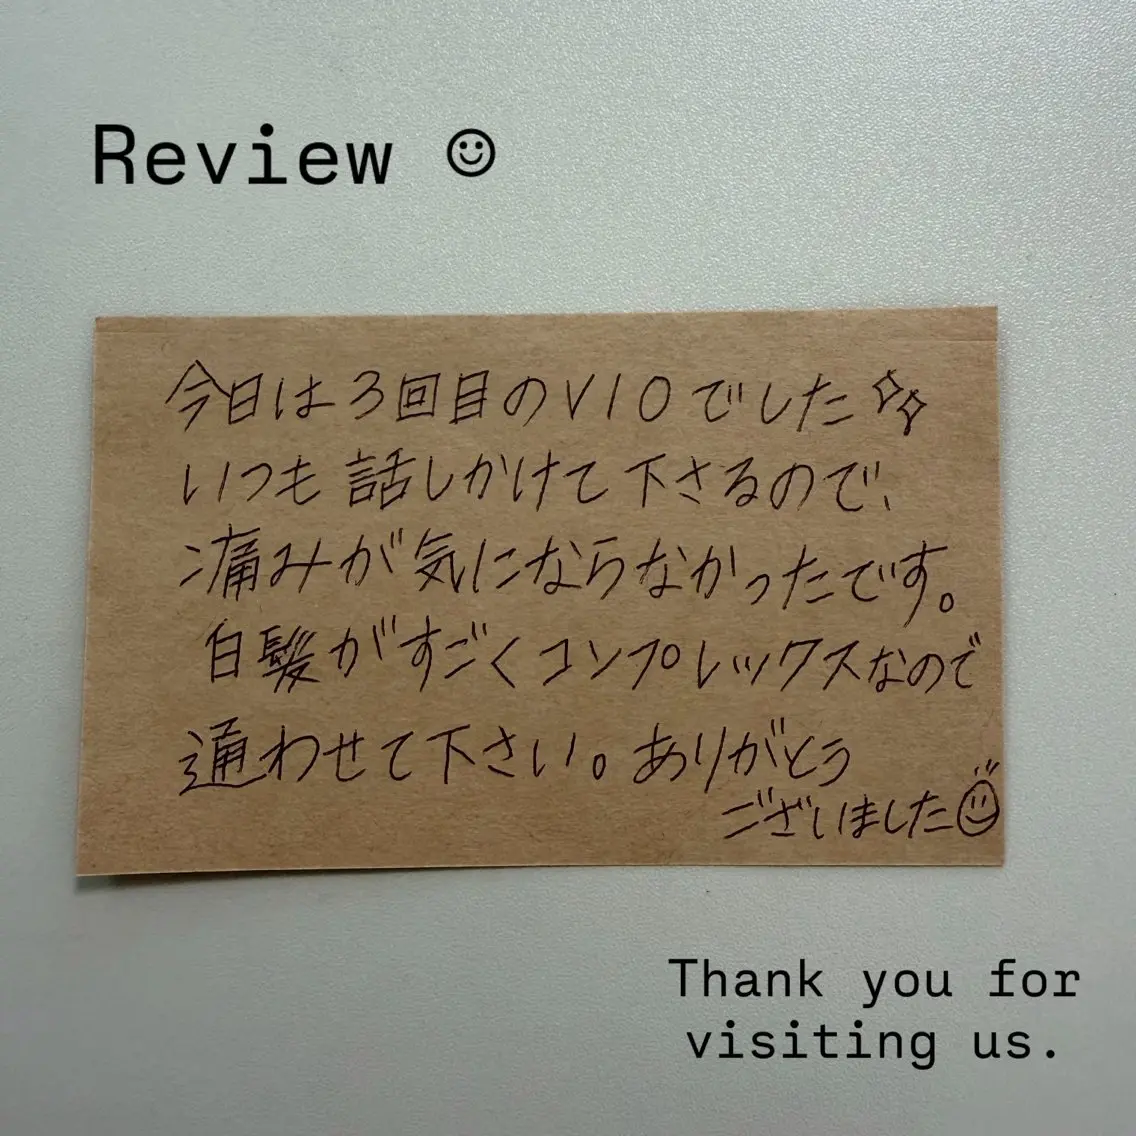 Review ☺
今日は3回目のVIOでした✨
いつも話しかけて下さるので、
痛みが気にならなかったです。
白髪がすごくコンプレックスなので
通わせて下さい。ありがとう
ございました☺
Thank you for
visiting us.